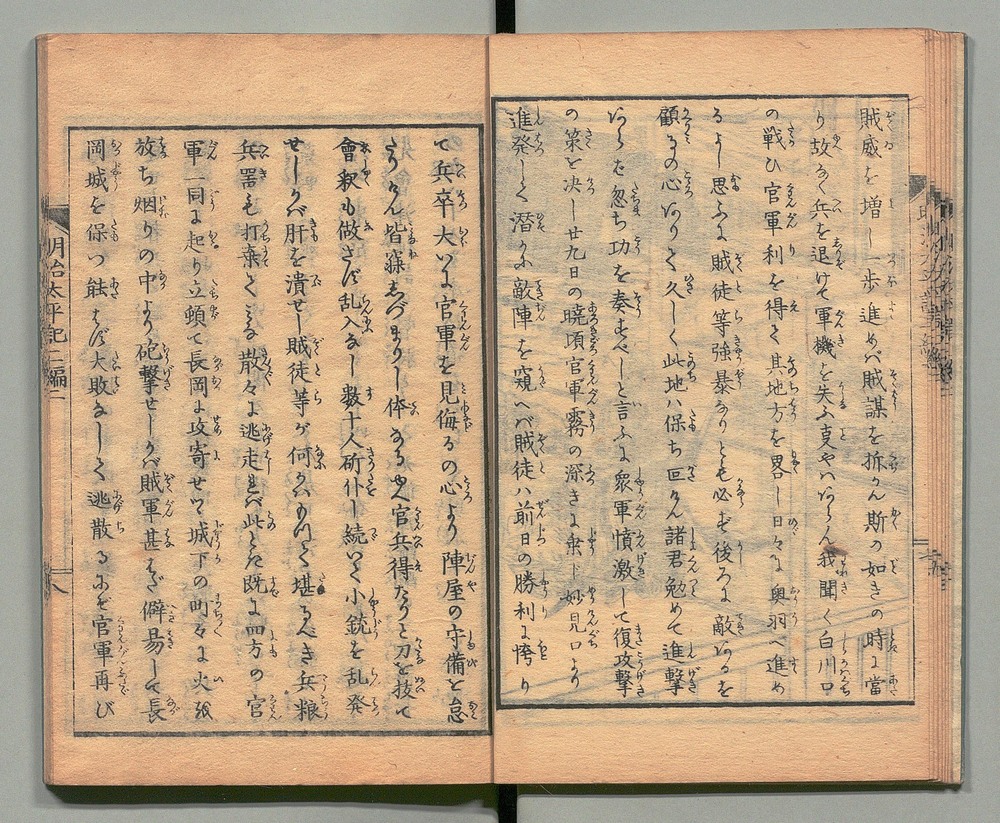 賊威を増し一歩進めバ賊謀を拆かん斯の如きの時に當
り故なく兵を退けて軍機を失ふ叓やハある可らん我聞く白川口
の戦ひ官軍利を得て其地方を畧し日々に奥羽へ進め
るよし思ふに賊徒等強暴なりとも必ず後ろに敵あるを
顧るの心ありて久しく此地ハ保ち叵かん諸君勉めて進撃
あらむ忽ち功を奏すべしと言ふに衆軍憤激して復攻撃
の策を决し廿九日の暁頃官軍霧の深きに乗し妙見口より
進発して潜かに敵陣を窺へバ賊徒ハ前日の勝利に誇り
て兵卒大いに官軍を見侮るの心より陣屋の守備を怠
たりけん皆寐しづまりし体なるゆえ官兵得たりと刀を抜て
會釈も做さず乱入なし数十人斫仆し続いて小銃を乱発
せしかバ肝を潰せし賊徒等が何かハもつて堪るべき兵粮
兵器も打棄てゝ散々に逃走れバ此とき既に四方の官
軍一同に起り立頓て長岡に攻寄せツヽ城下の町々に火を
放ち烟りの中より砲撃せしかバ賊軍甚はだ僻易して長
岡城を保つ能はず大敗なして逃散るにぞ官軍再び
明治太平記二編二
八